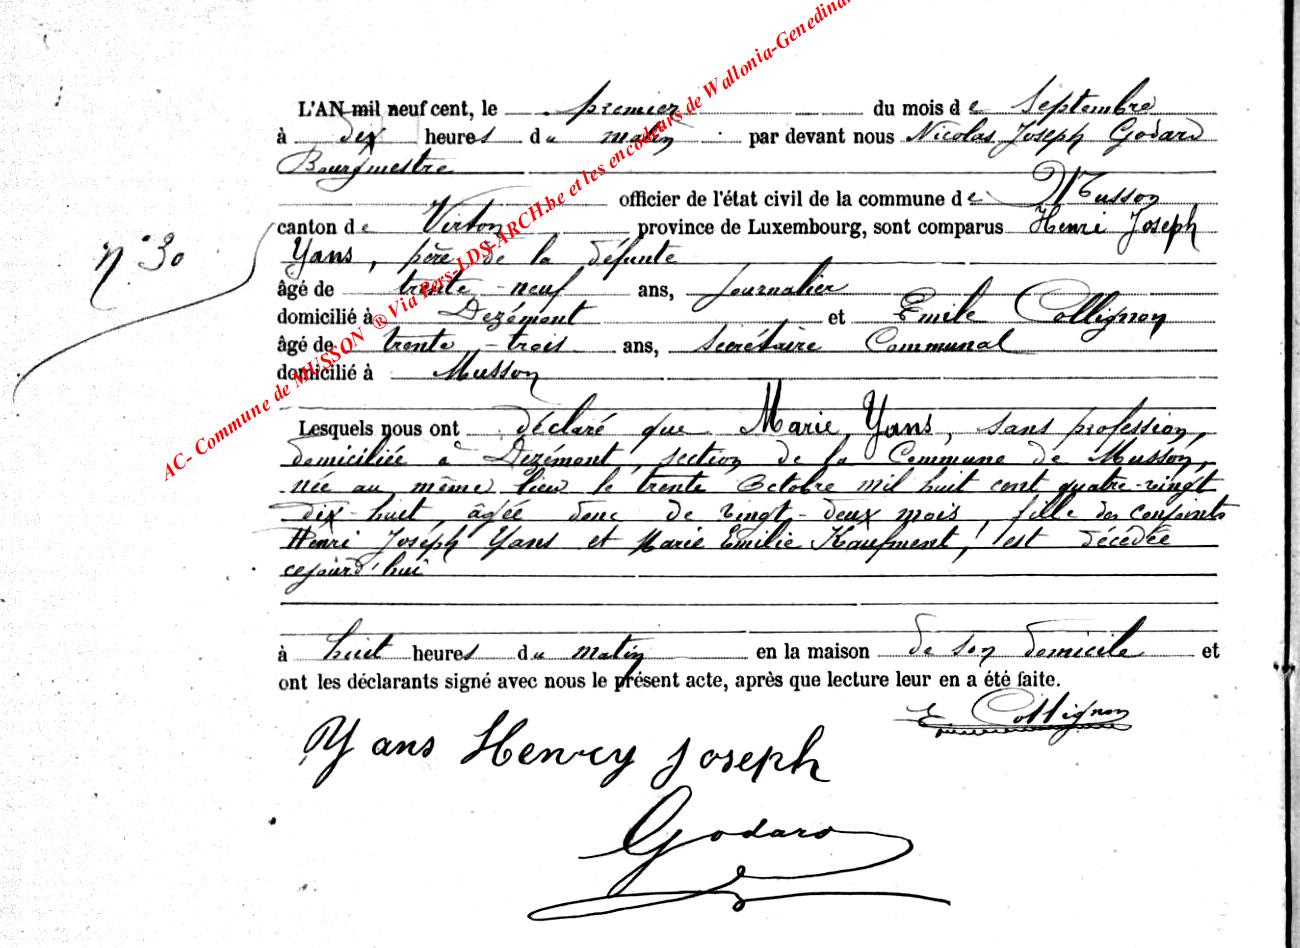 L'AN mil neuf cent, le premier du mois de Septembre
à dix heures du matin par devant nous Nicolas Joseph Godard
Bourgmestre
officier de l'état civil de la commune de Musson
canton de Virton province de Luxembourg, sont comparus Henri Joseph
Yans, père de la défunte
âgé de trente-neuf ans, Journalier
domicilié à Dezémont et Emile Collignon
âgé de trente-trois ans, Secrétaire Communal
domicilié à Musson
n° 30
Lesquels nous ont déclaré que Marie Yans, sans profession,
domiciliée à Dezémont, section de la Commune de Musson,
née au même lieu le trente Octobre mil huit cent quatre-vingt
dix-huit, âgée donc de vingt-deux mois, fille des conjoints
Henri Joseph Yans et Marie Emilie Kaufment, est décédée
cejourd'hui
à huit heures du matin en la maison de son domicile et
ont les déclarants signé avec nous le présent acte, après que lecture leur en a été faite.
E Collignon
Yans Henry Joseph
Godard
AC- Commune de MUSSON ® Via Pers-LDS-ARCH.be et les encodeurs de Wallonia-Genedinan